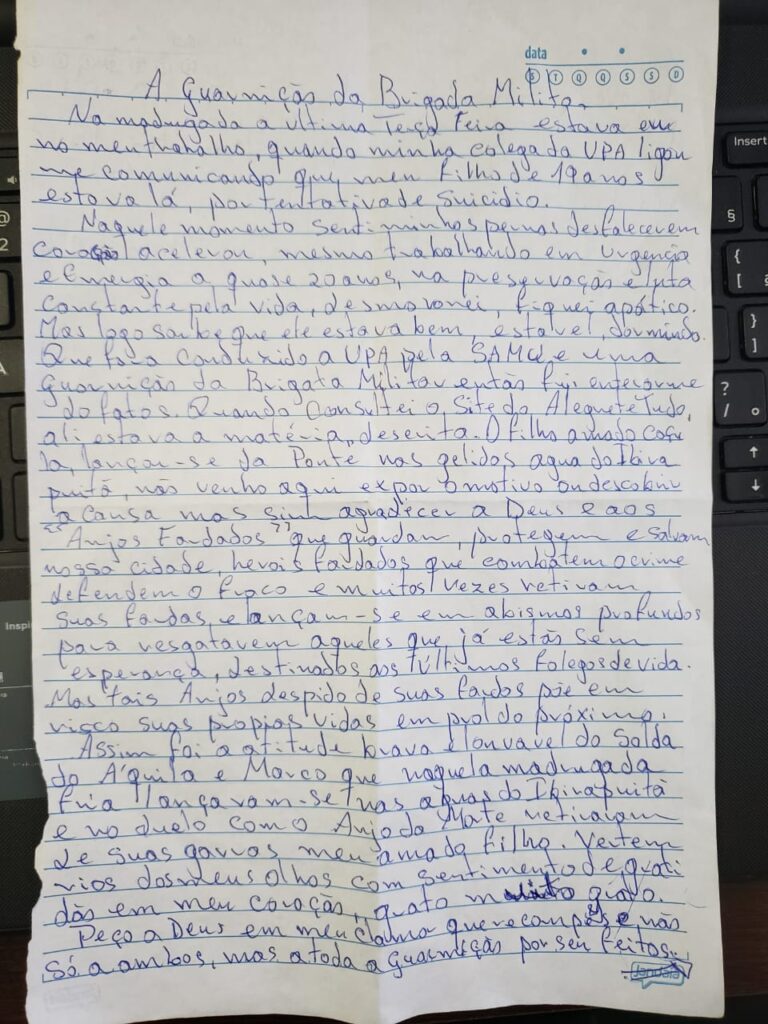 data
D T Q Q S S D
A Guarnição da Brigada Milita.
Na madrugada a última Terça Feira estava em
no meu trabalho, quando minha colega da UPA ligou
me comunicando que, meu filho de 19 anos
estava lá, por tentativa de Suicídio.
Naquele momento senti minhas pernas desfalecerem
coração acelerou, mesmo trabalhando em urgência
e Emergia a quase 20 anos, na preservação e luta
constante pela vida, desmoronei, fiquei apático.
Mas logo soube que ele estava bem, estavel, dormindo.
Que fora conduzido a UPA pela SAMU, e uma
guarnição da Brigata Militar então fui enterarme
do fatos. Quando Consultei o Site do AlegreteTudo,
ali estava a matéria, descrita. O filho amado caçu
la, lançou-se da Ponte nas gelidas agua do Ibira
puitã, não venho aqui expor o motivo ou descobrir
a causa mas sim agradecer a Deus e aos
"Anjos Fardados" que guardam, protegem e salvam
nossa cidade, herois fardados que combatem o crime
defendem o fraco e muitos vezes retiram
suas fardas, e lançam-se em abismos profundos
para resgatarem aqueles que já estão sem
esperança, destinados aos últimos folegos de vida.
Mas tais Anjos despido de suas fardas põe em
risco suas propias vidas em prol do próximo.
Assim foi a atitude brava e louvavel do Solda
do Áquila e Marco que naquela madrugada
fria lançaram-se nas aguas do Ibirapuitã
e no duelo com o Anjo da Mate retiraram
de suas garras meu amado filho. Vertem
rios dos meus olhos com sentimento de grati
dão em meu coração, grato grato.
Peço a Deus em meu clamor que recompense não
só a ambos, mas a toda a Guarnição por seu feitos.
Jandaia
Insert